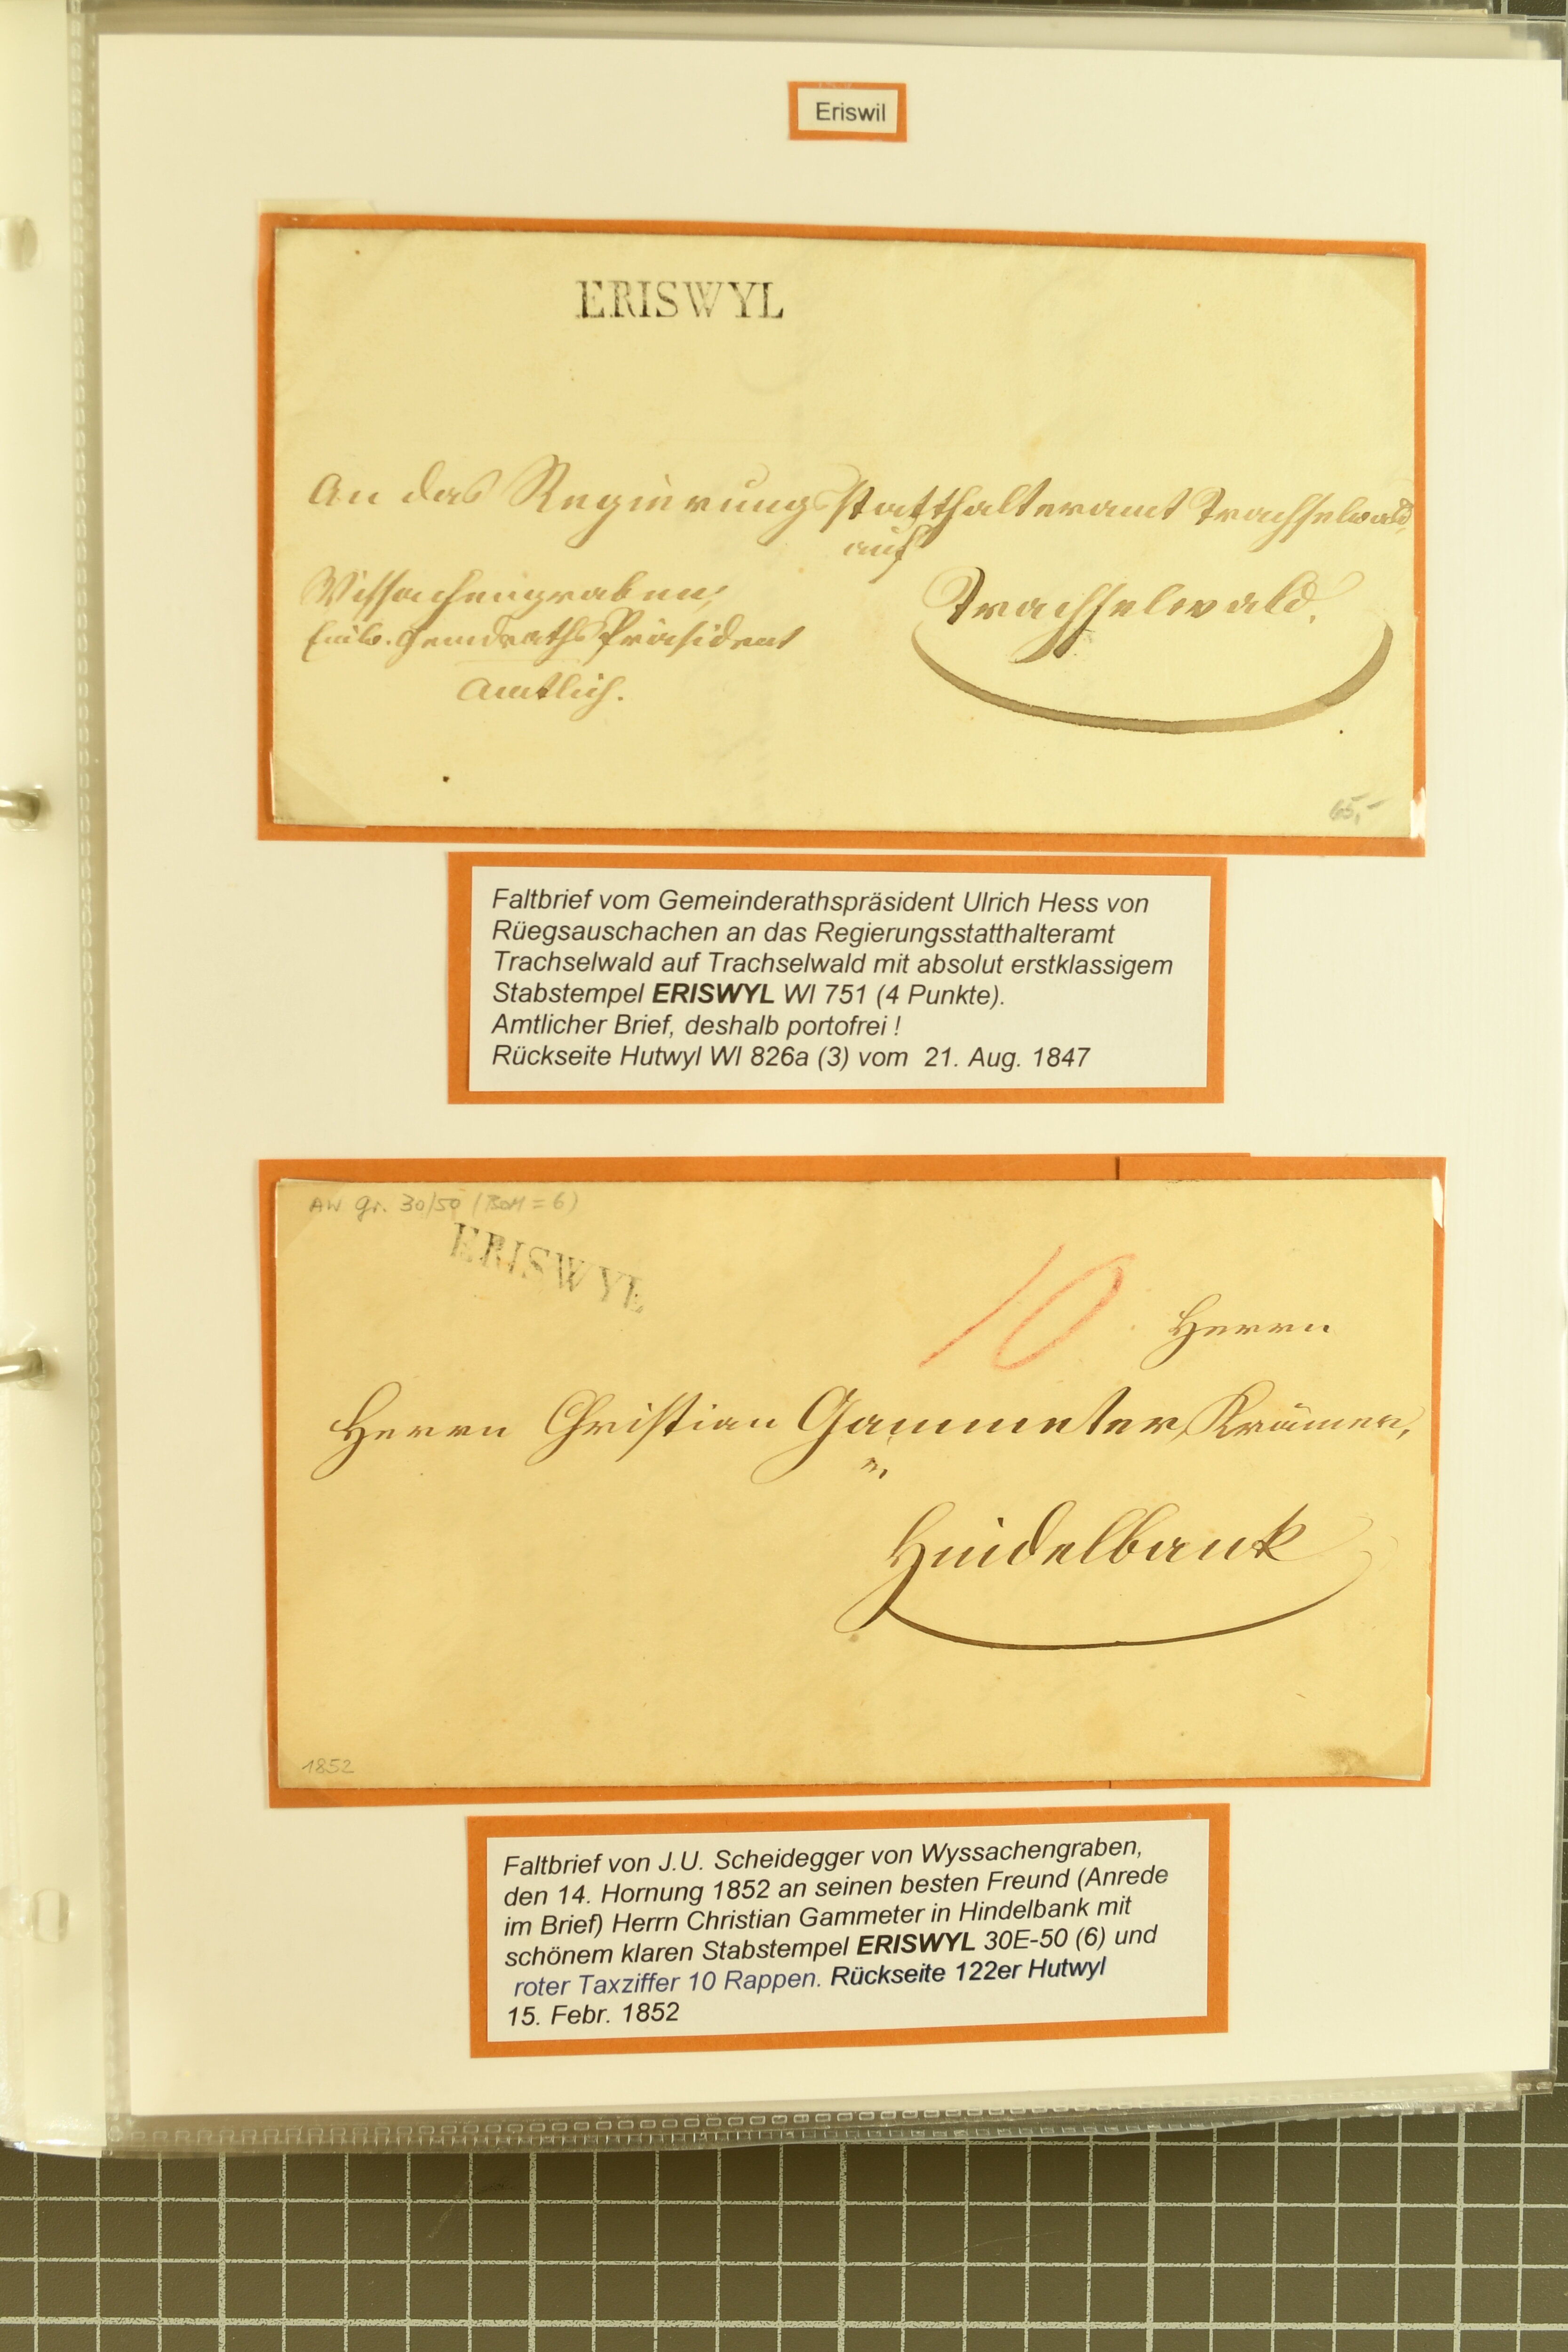 Eriswil
ERISWYL
An das Regierungsstatthalteramt Trachselwald,
auf
Trachselwald.
Wissachengraben,
Gemdraths Präsident
Amtlich.
65,-
Faltbrief vom Gemeinderathspräsident Ulrich Hess von
Rüegsauschachen an das Regierungsstatthalteramt
Trachselwald auf Trachselwald mit absolut erstklassigem
Stabstempel ERISWYL WI 751 (4 Punkte).
Amtlicher Brief, deshalb portofrei !
Rückseite Hutwyl WI 826a (3) vom 21. Aug. 1847
AW gr. 30/50 (BOM = 6)
ERISWYL
10
Herrn
Herrn Christian Gammeter, Krämer,
in
Hindelbank
1852
Faltbrief von J.U. Scheidegger von Wyssachengraben,
den 14. Hornung 1852 an seinen besten Freund (Anrede
im Brief) Herrn Christian Gammeter in Hindelbank mit
schönem klaren Stabstempel ERISWYL 30E-50 (6) und
roter Taxziffer 10 Rappen. Rückseite 122er Hutwyl
15. Febr. 1852